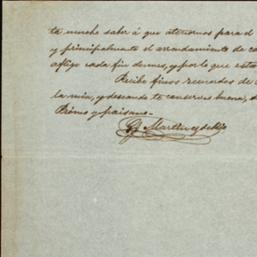 ta mucho saber á que atenernos para el
y principalmente el arrendamiento de ca
aflige cada fin de mes, y por lo que esta
Recibe finos recuerdos de
la mia, y deseando te conserves buena, 
Primo y paisano.
G. Martin